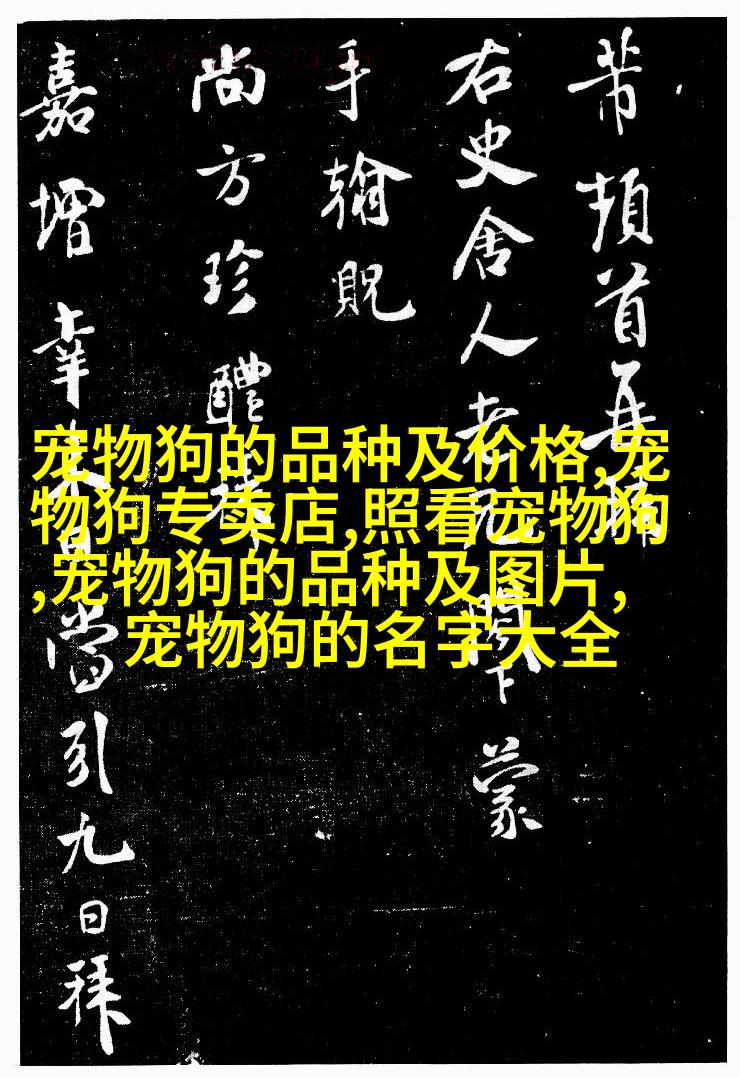 宠物狗的品种及价格,宠
物狗专卖店,照看宠物狗
,宠物狗的品种及图片,
宠物狗的名字大全
芾頓首再
右史舍人老兄閣下蒙
手翰貺
尚方珍醴
嘉增幸當引九日拜